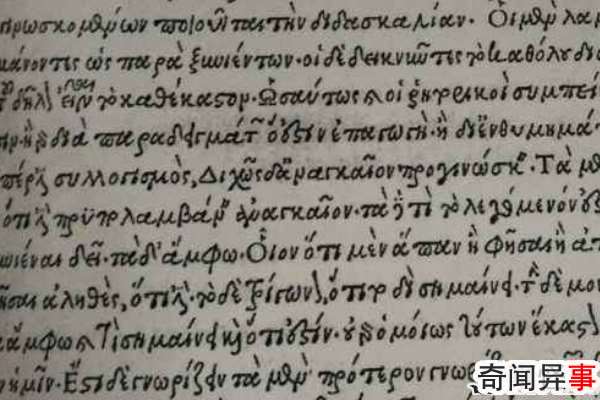 γινωσκομένων ποιοῦνται τὴν διδασκαλίαν. Οἱ μὲν λαμ
βάνοντες ὡς παρὰ ξυνιέντων· οἱ δὲ δεικνύντες τὸ καθόλου δι
δῆλον εἶναι τὸ καθέκαστον. Ὡσαύτως καὶ οἱ ῥητορικοὶ συμπεί
ἢ διὰ παραδειγμάτων ὅ ἐστιν ἐπαγωγὴ ἢ δι' ἐνθυμημά
ὅπερ ἐστὶ συλλογισμός. Διχῶς δ' ἀναγκαῖον προγινώσκειν. Τὰ μὲν
ὅτι ἔστι προϋπολαμβάνειν ἀναγκαῖον. τὰ δὲ τί τὸ λεγόμενόν ἐστι
ξυνιέναι δεῖ. τὰ δ' ἄμφω. Οἷον ὅτι μὲν ἅπαν ἢ φῆσαι ἢ ἀπ
φῆσαι ἀληθὲς, ὅτι ἔστι. τὸ δὲ τρίγωνον, ὅτι τοδὶ σημαίνει. τὴν δὲ μον
ἄμφω καὶ τί σημαίνει καὶ ὅτι ἔστιν. οὐ γὰρ ὁμοίως τούτων ἕκαστον
ἡμῖν. Ἔστι δὲ γνωρίζειν τὰ μὲν πρότερον γνωρ
奇闻异事